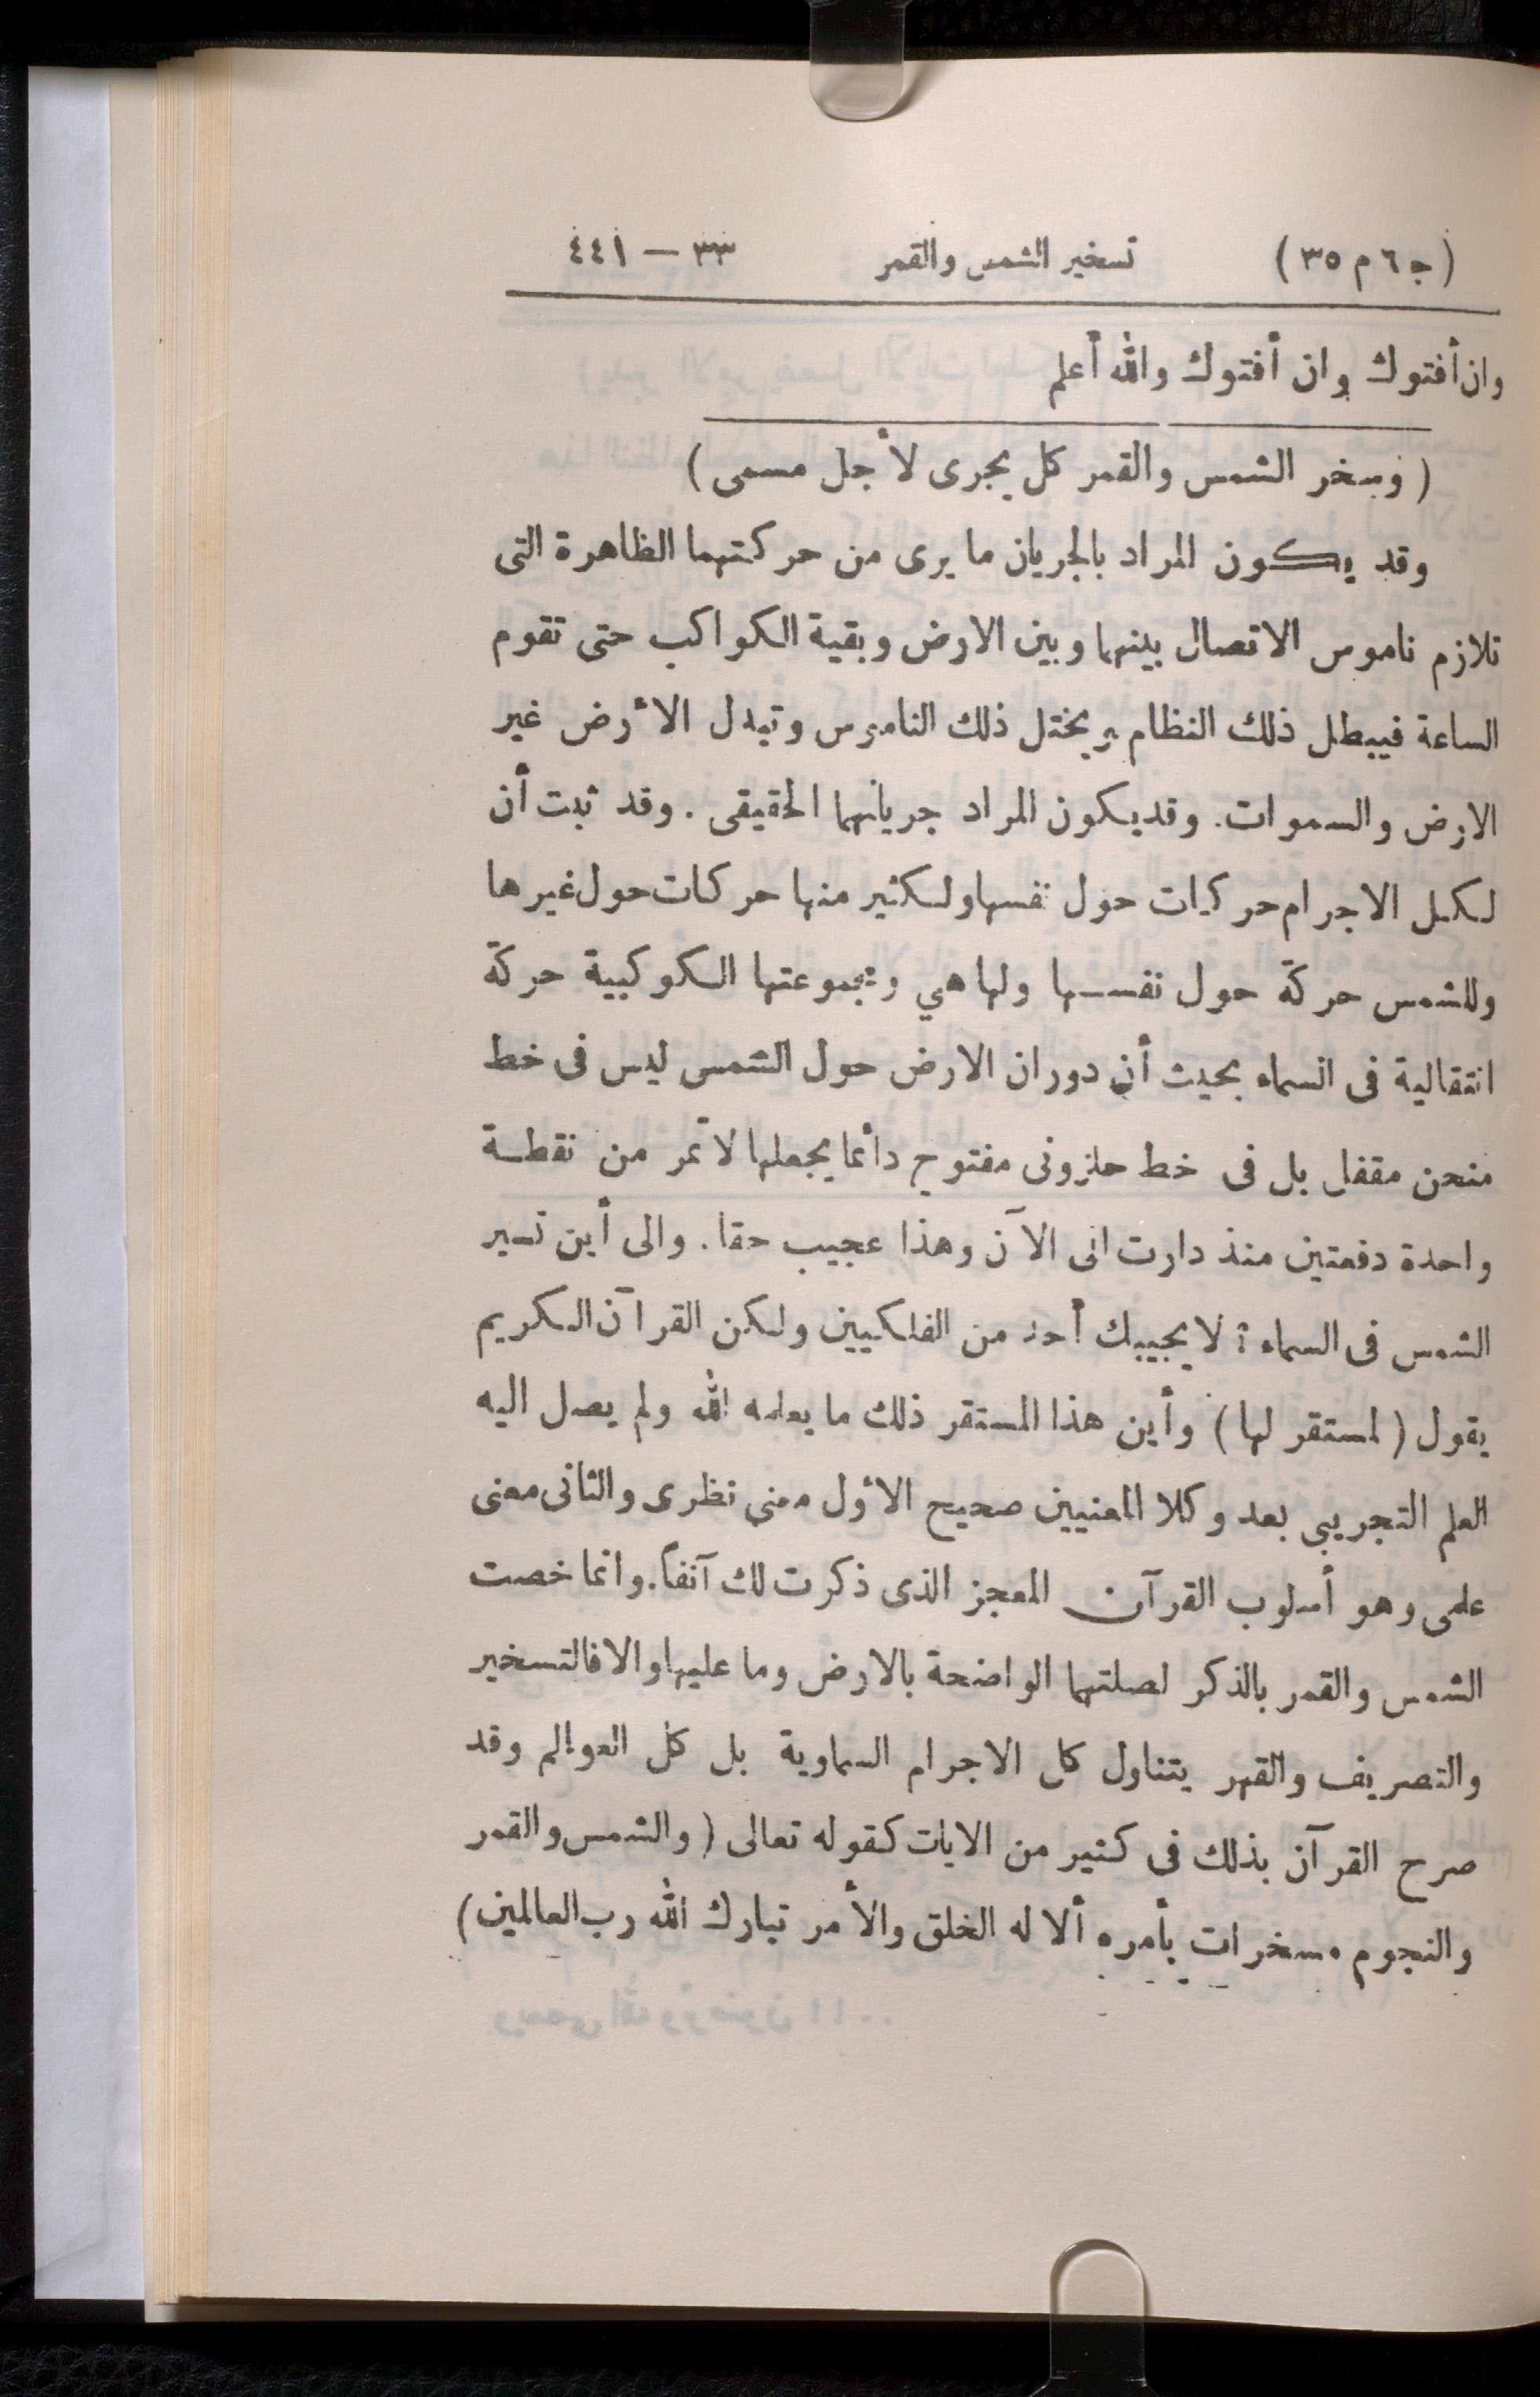 (ج ٦ م ٣٥) تسخير الشمس والقمر ٣٣ — ٤٤١
وان أفتوك وان أفتوك والله أعلم
( وسخر الشمس والقمر كل يجرى لأجل مسمى )
وقد يكون المراد بالجريان ما يرى من حركتهما الظاهرة التى
تلازم ناموس الاتصال بينهما وبين الارض وبقية الكواكب حتى تقوم
الساعة فيبطل ذلك النظام ويختل ذلك الناموس وتبدل الأرض غير
الارض والسموات. وقد يكون المراد جريانهما الحقيقى . وقد ثبت أن
لكل الاجرام حركات حول نفسها ولكثير منها حركات حول غيرها
وللشمس حركة حول نفسها ولها هي ومجموعتها الكوكبية حركة
انتقالية فى السماء بحيث أن دوران الارض حول الشمس ليس فى خط
منحن مقفل بل فى خط حلزونى مفتوح دائما يجعلها لا تمر من نقطة
واحدة دفعتين منذ دارت الى الآن وهذا عجيب حقا . والى أين تسير
الشمس فى السماء ؟ لا يجيبك أحد من الفلكيين ولكن القرآن الكريم
يقول ( لمستقر لها ) وأين هذا المستقر ذلك ما يعلمه الله ولم يصل اليه
العلم التجريبى بعد وكلا المعنيين صحيح الأول معنى نظرى والثانى معنى
علمى وهو أسلوب القرآن المعجز الذى ذكرت لك آنفاً. وانما خصت
الشمس والقمر بالذكر لصلتهما الواضحة بالارض وما عليها والا فالتسخير
والتصريف والقهر يتناول كل الاجرام السماوية بل كل العوالم وقد
صرح القرآن بذلك فى كثير من الايات كقوله تعالى ( والشمس والقمر
والنجوم مسخرات بأمره ألا له الخلق والأمر تبارك الله رب العالمين )